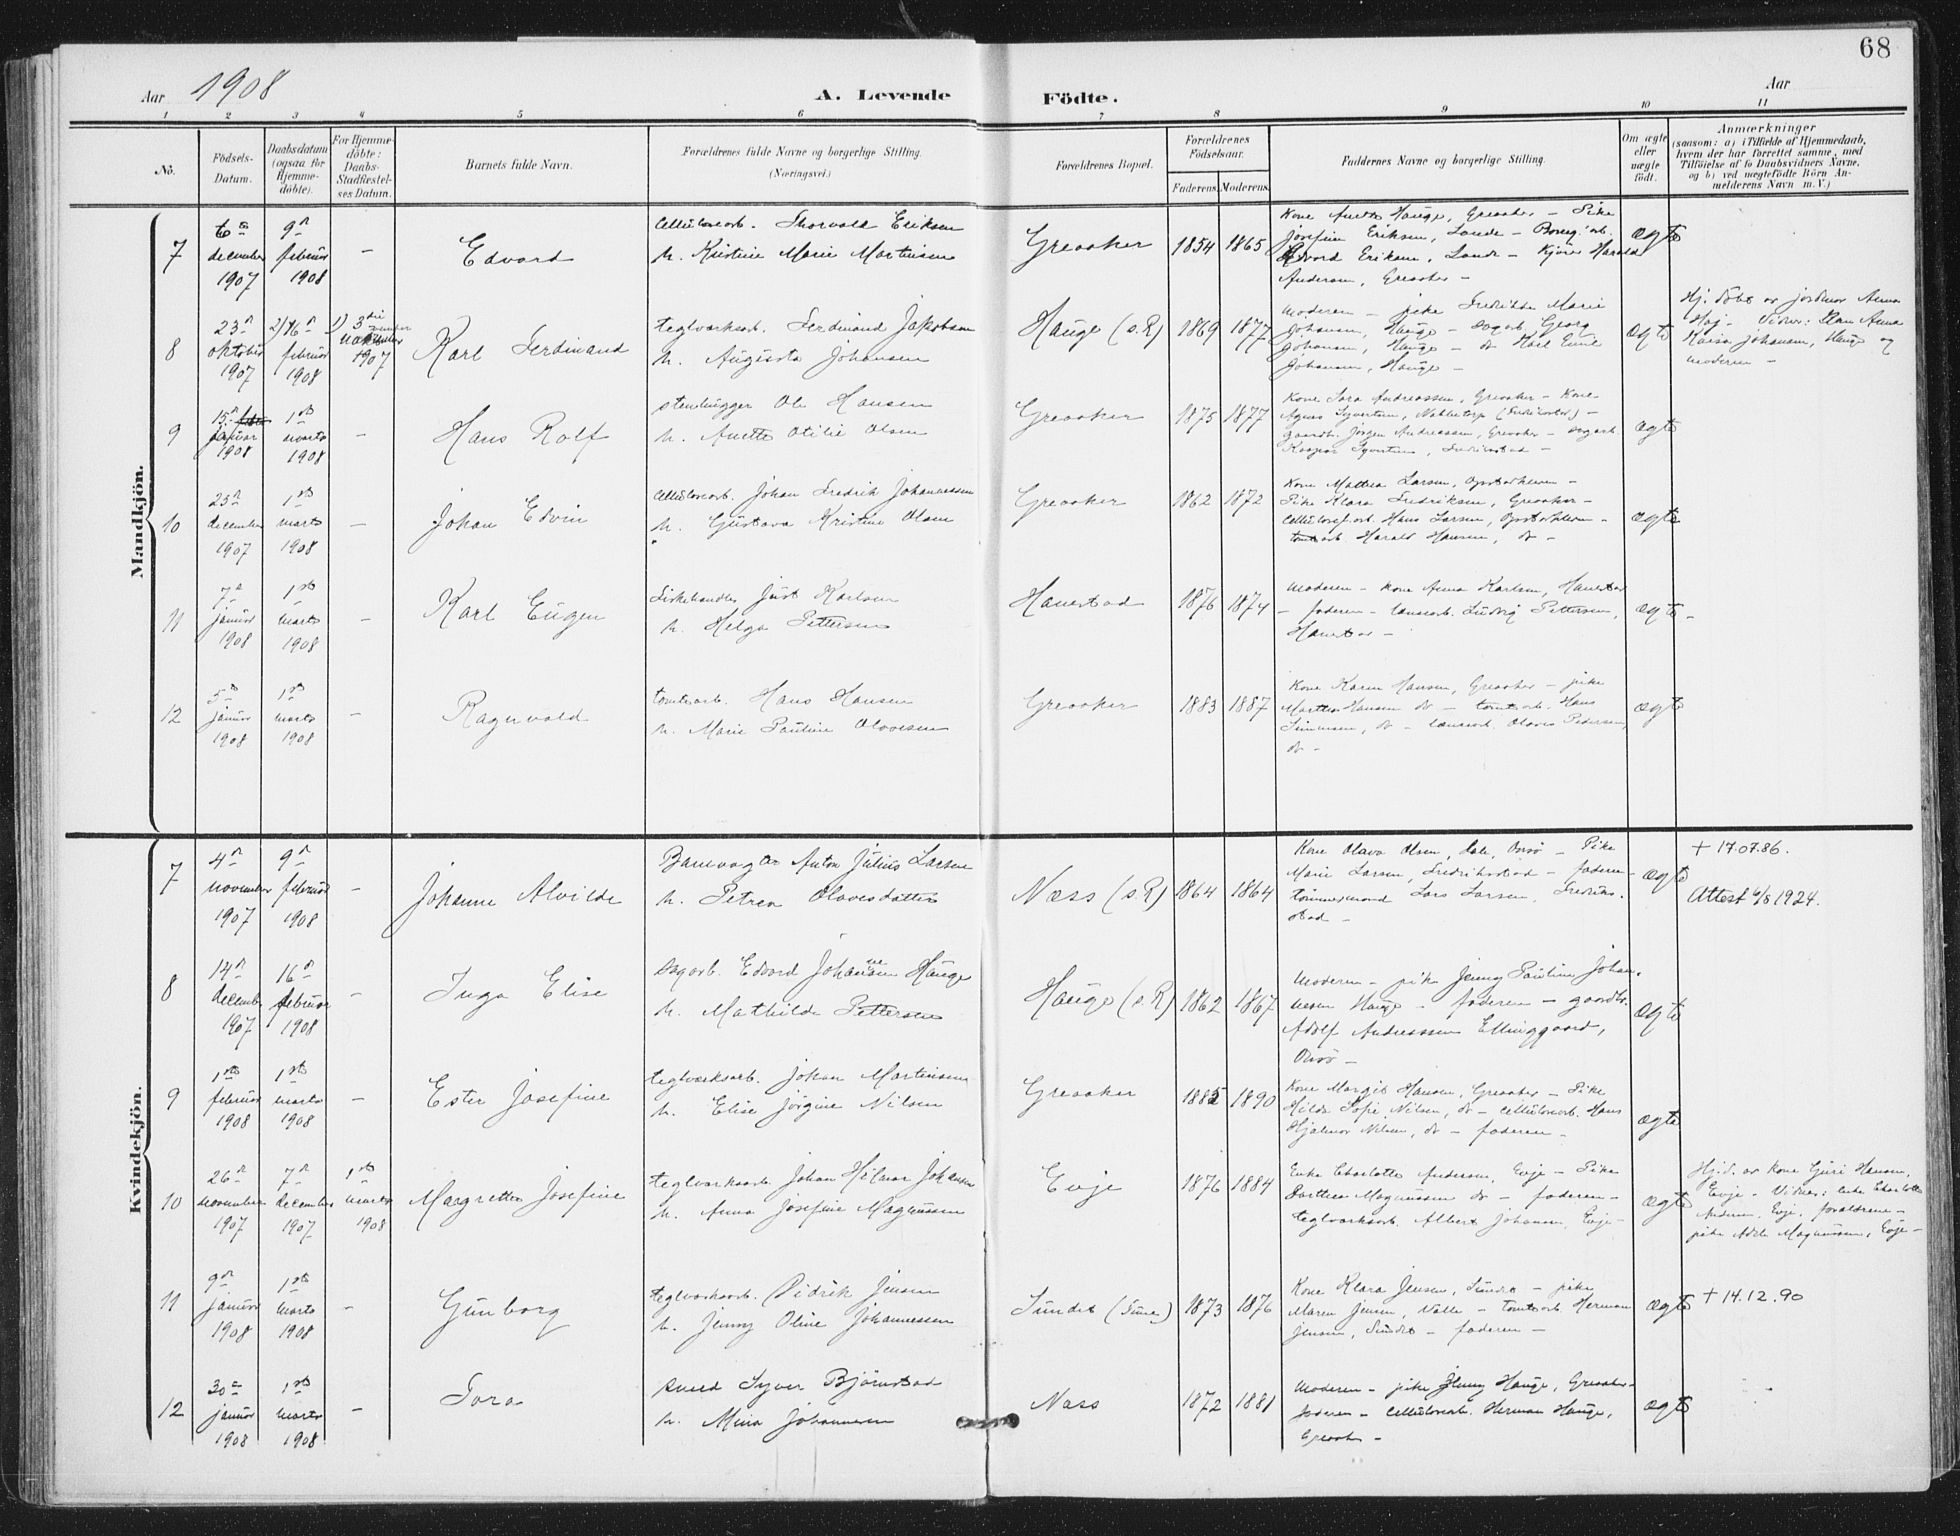 68
Aar 1908
A. Levende Födte.
Aar
1 2 3 4 5 6 7 8 9 10 11
No.
Födsels-Datum.
Daabsdatum (ogsaa for Hjemme-döbte).
For Hjemme-döbte: Daabs-Stadfæstel-ses Datum.
Barnets fulde Navn.
Forældrenes fulde Navne og borgerlige Stilling.
(Næringsvei.)
Forældrenes Bopæl.
Forældrenes Födselsaar.
Faderens. Moderens.
Faddernes Navne og borgerlige Stilling.
Om ægte eller uægte födt.
Anmærkninger
(saasom: a) i Tilfælde af Hjemmedaab,
hvem der har forrettet samme, med
Tilföielse af to Daabsvidners Navne,
og b) ved uægtefödte Börn An-
melderens Navn m.V.)
Mandkjön.
7
6te december 1907
9de februar 1908
-
Edvard
Cellulosearb. Thorvald Eriksen
h. Kristine Marie Martinsen
Greaaker
1854 1865
Kone Anette Hauge, Greaaker - Pike
Josefine Eriksen, Lande -
Edvard Eriksen, Lande - Kjörer Harald
Andersen, Greaaker -
ægte
8
23de oktober 1907
2) 16de februar 1908
1) 3die 1907
Karl Ferdinand
teglverksarb. Ferdinand Jakobsen
h. Augusta Johansen
Hauge (s.R)
1869 1877
Moderen - pike Fredrikke Marie
Johansen, Hauge - sagarb. Georg
Johansen, Hauge - do Karl Emil
Johansen, Hauge -
ægte
Hj. döbt av jordmor Anna
Höj - Vidner:
Johansen, Hauge og
moderen -
9
15de januar 1908
1ste marts 1908
-
Hans Rolf
stenhugger Ole Hansen
h. Anette Otilie Olsen
Greaaker
1875 1877
Kone Lora Andreassen, Greaaker - Kone
Agnes Syvertsen, Nabbetorp (Fredrikstad) -
gaardb. Jörgen Andreassen, Greaaker - sagarb.
Kaspar Syvertsen, Fredrikstad -
ægte
10
25de december 1907
1ste marts 1908
-
Johan Edvin
Cellulosearb. Johan Fredrik Johannessen
h. Gustava Kristine Olsen
Greaaker
1862 1872
Kone Mathea Larsen, Opstadheien -
Pike Klara Fredriksen, Greaaker -
Cellulosef.arb. Hans Larsen, Opstadheien -
tomtearb. Harald Hansen, do -
ægte
11
7de januar 1908
1ste marts 1908
-
Karl Eugen
Fiskehandler Just Karlsen
h. Helga Pettersen
Hanestad
1876 1874
Moderen - kone Anna Karlsen, Hanestad
- faderen - Ludvig Pettersen,
Hanestad -
ægte -
12
5te januar 1908
1ste marts 1908
-
Ragnvald
tomtearb. Hans Hansen
h. Marie Pauline Olavesen
Greaaker
1883 1887
Kone Karen Hansen, Greaaker - pike
Marthe Hansen do - tomtearb. Hans
Simensen, do - Olaves Pedersen,
do -
ægte
Kvindekjön.
7
4de november 1907
9de februar 1908
-
Johanne Alvilde
Banevogter Anton Julius Larsen
h. Petrea Olavesdatter
Næss (s.R)
1864 1864
Kone Olava Olsen, Onsö - Pike
Marie Larsen, Fredrikstad - faderen -
tömmermand Lars Larsen, Fredrik-
stad -
ægte
+ 17.07.86.
Attest 6/8 1924.
8
14de december 1907
16de februar 1908
-
Inga Elise
Sagarb. Edvard Johannesen Hauge
h. Mathilde Pettersen
Hauge (s.R)
1862 1867
Moderen - pike Jenny Pauline Johan-
nesen Hauge - faderen - gaardbr.
Adolf Andreassen Ellinggaard,
Onsö -
ægte
9
1ste februar 1908
1ste marts 1908
-
Ester Josefine
teglverksarb. Johan Martinsen
h. Elise Jörgine Nilsen
Greaaker
1885 1890
Kone Margit Hansen, Greaaker - Pike
Hilda Sofie Nilsen, do - Cellulosearb. Hans
Hjalmar Nilsen, do - faderen -
ægte
10
26de november 1907
7de december 1907
1ste marts 1908
Margrethe Josefine
teglverksarb. Johan Hilmar Johansen
h. Anna Josefine Magnussen
Evje
1876 1884
Enke Charlotte Andersen, Evje - Pike
Dorthea Magnussen do - faderen -
teglverksarb. Albert Johansen, Evje -
ægte
Hj.d. av kone Guri Hansen,
Evje - Vidner: enke Charlotte
Andersen, Evje, forældrene -
pike Adele Magnussen, Evje -
11
9de januar 1908
1ste marts 1908
-
Gunborg
teglverksarb. Didrik Jensen
h. Jenny Oline Johannessen
Sundet (Tune)
1873 1876
Kone Klara Jensen, Sundet - pike
Maren Jensen, Valle - tomtearb. Herman
Jensen, Sundet - faderen -
ægte
+ 14.12.90
12
30te januar 1908
1ste marts 1908
-
Tora
Smed Syver Björnstad
h. Mina Johannesen
Næss
1872 1881
Moderen - pike Jenny Hauge, Greaaker -
faderen - Cellulosearb. Herman Hauge,
Greaaker -
ægte